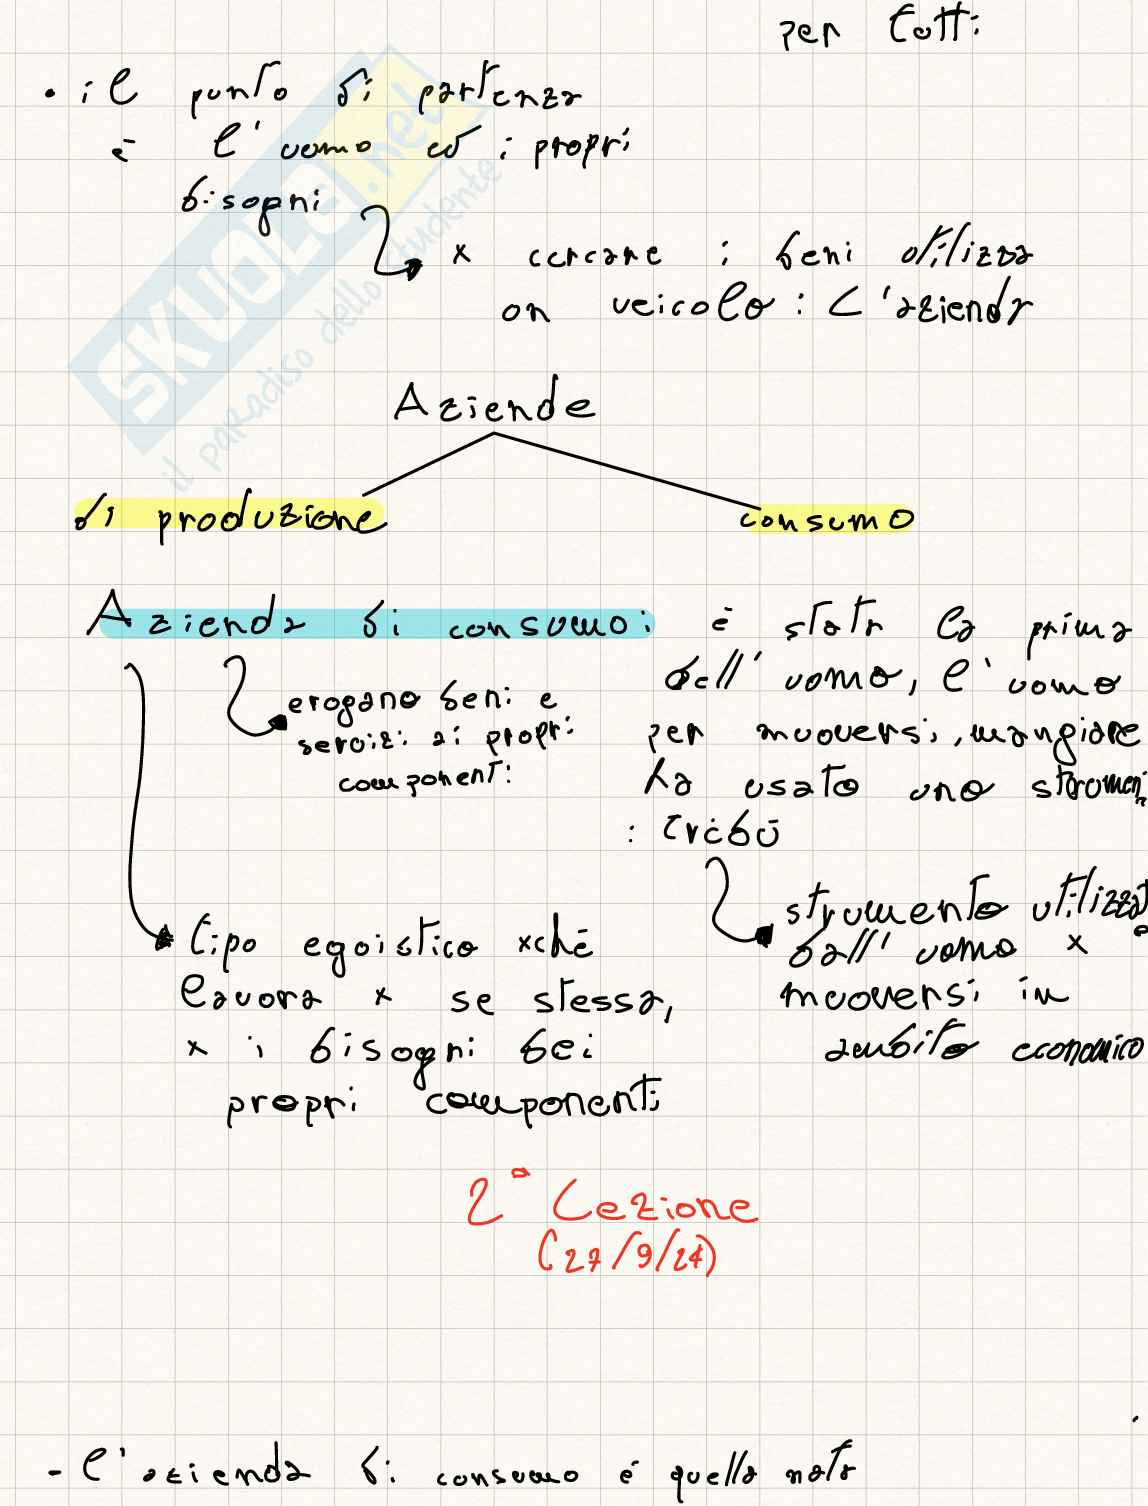 per tutti
• il punto di partenza
è l'uomo ed i propri
bisogni
x cercare i beni utilizza
un veicolo: L'azienda
Aziende
di produzione
consumo
Azienda di consumo:
erogano beni e
servizi ai propri
componenti
è stata la prima
dell'uomo, l'uomo
per muoversi, mangiare
ha usato uno strumen
: tribù
strumento utilizzato
dall'uomo x
muoversi in
ambito economico
tipo egoistico xché
lavora x se stessa,
x i bisogni dei
propri componenti
2° Lezione
(27/9/24)
- l'azienda di consumo è quella nata
SKUOLA.net
il paradiso dello studente